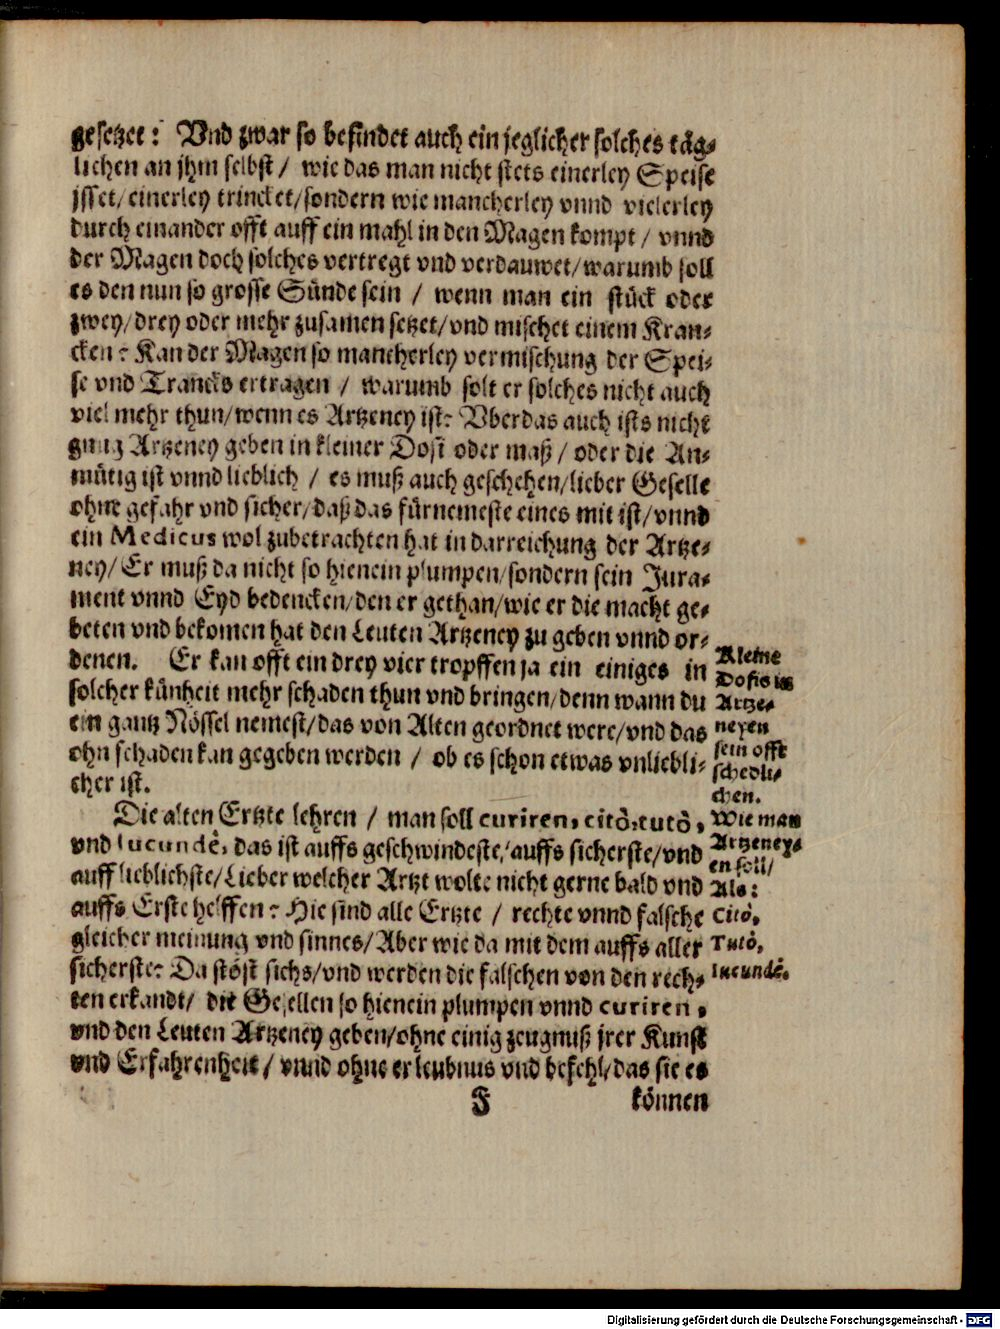 gesetzet: Vnd zwar so befindet auch ein jeglicher solches täg-
lichen an jhm selbst / wie das man nicht stets einerley Speise
jsset/einerley trincket/sondern wie mancherley vnnd vielerley
durch einander offt auff ein mahl in den Magen kompt / vnnd
der Magen doch solches vertregt vnd verdauwet/warumb soll
es den nun so grosse Sünde sein / wenn man ein stück oder
zwey/drey oder mehr zusamen setzet/vnd mischet einem Kran-
cken? Kan der Magen so mancherley vermischung der Spei-
se vnd Trancks ertragen / warumb solt er solches nicht auch
viel mehr thun/wenn es Artzeney ist? Vber das auch ists nicht
gnug Artzeney geben in kleiner Dosi oder maß / oder die An-
mütig ist vnnd lieblich / es muß auch geschehen/lieber Geselle
ohne gefahr vnd sicher/daß das fürnemeste eines mit ist/vnnd
ein Medicus wol zubetrachten hat in darreichung der Artze-
ney/ Er muß da nicht so hienein plumpen/sondern sein Jura-
ment vnnd Eyd bedencken/den er gethan/wie er die macht ge-
beten vnd bekomen hat den Leuten Artzeney zu geben vnnd or-
denen. Er kan offt ein drey vier tropffen ja ein einiges in
solcher künheit mehr schaden thun vnd bringen/denn wann du
ein gantz Nössel nemest/das von Alten geordnet were/vnd das
ohn schaden kan gegeben werden / ob es schon etwas vnliebli-
cher ist.
Kleine
Dosis in
Artze-
neyen
sein offt
schedli-
chen.
Die alten Ertzte lehren / man soll curiren, citò, tutò,
vnd Iucundè, das ist auffs geschwindeste/auffs sicherste/vnd
auff lieblichste/Lieber welcher Artzt wolte nicht gerne bald vnd
auffs Erste helffen? Hie sind alle Ertzte / rechte vnnd falsche
gleicher meinung vnd sinnes/Aber wie da mit dem auffs aller
sicherste? Da stöst sichs/vnd werden die falschen von den rech-
ten erkandt/ die Gesellen so hienein plumpen vnnd curiren,
vnd den Leuten Artzeney geben/ohne einig zeugnuß jrer Kunst
vnd Erfahrenheit / vnnd ohne erleubnus vnd befehl/das sie es
Wie man
Artzeney-
en soll/
Als:
Citò,
Tutò,
Iucundè.
F können
Digitalisierung gefördert durch die Deutsche Forschungsgemeinschaft - DFG